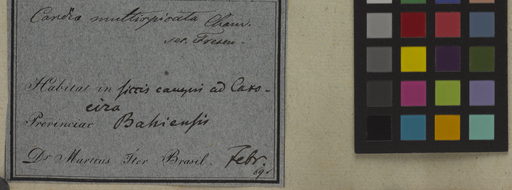 Cordia multispicata Cham.
sec. Fresen.
Habitat in siccis campis ad Caxo-
eira
Provinciae Bahiensis
Dr Martius Iter Brasil. Febr.